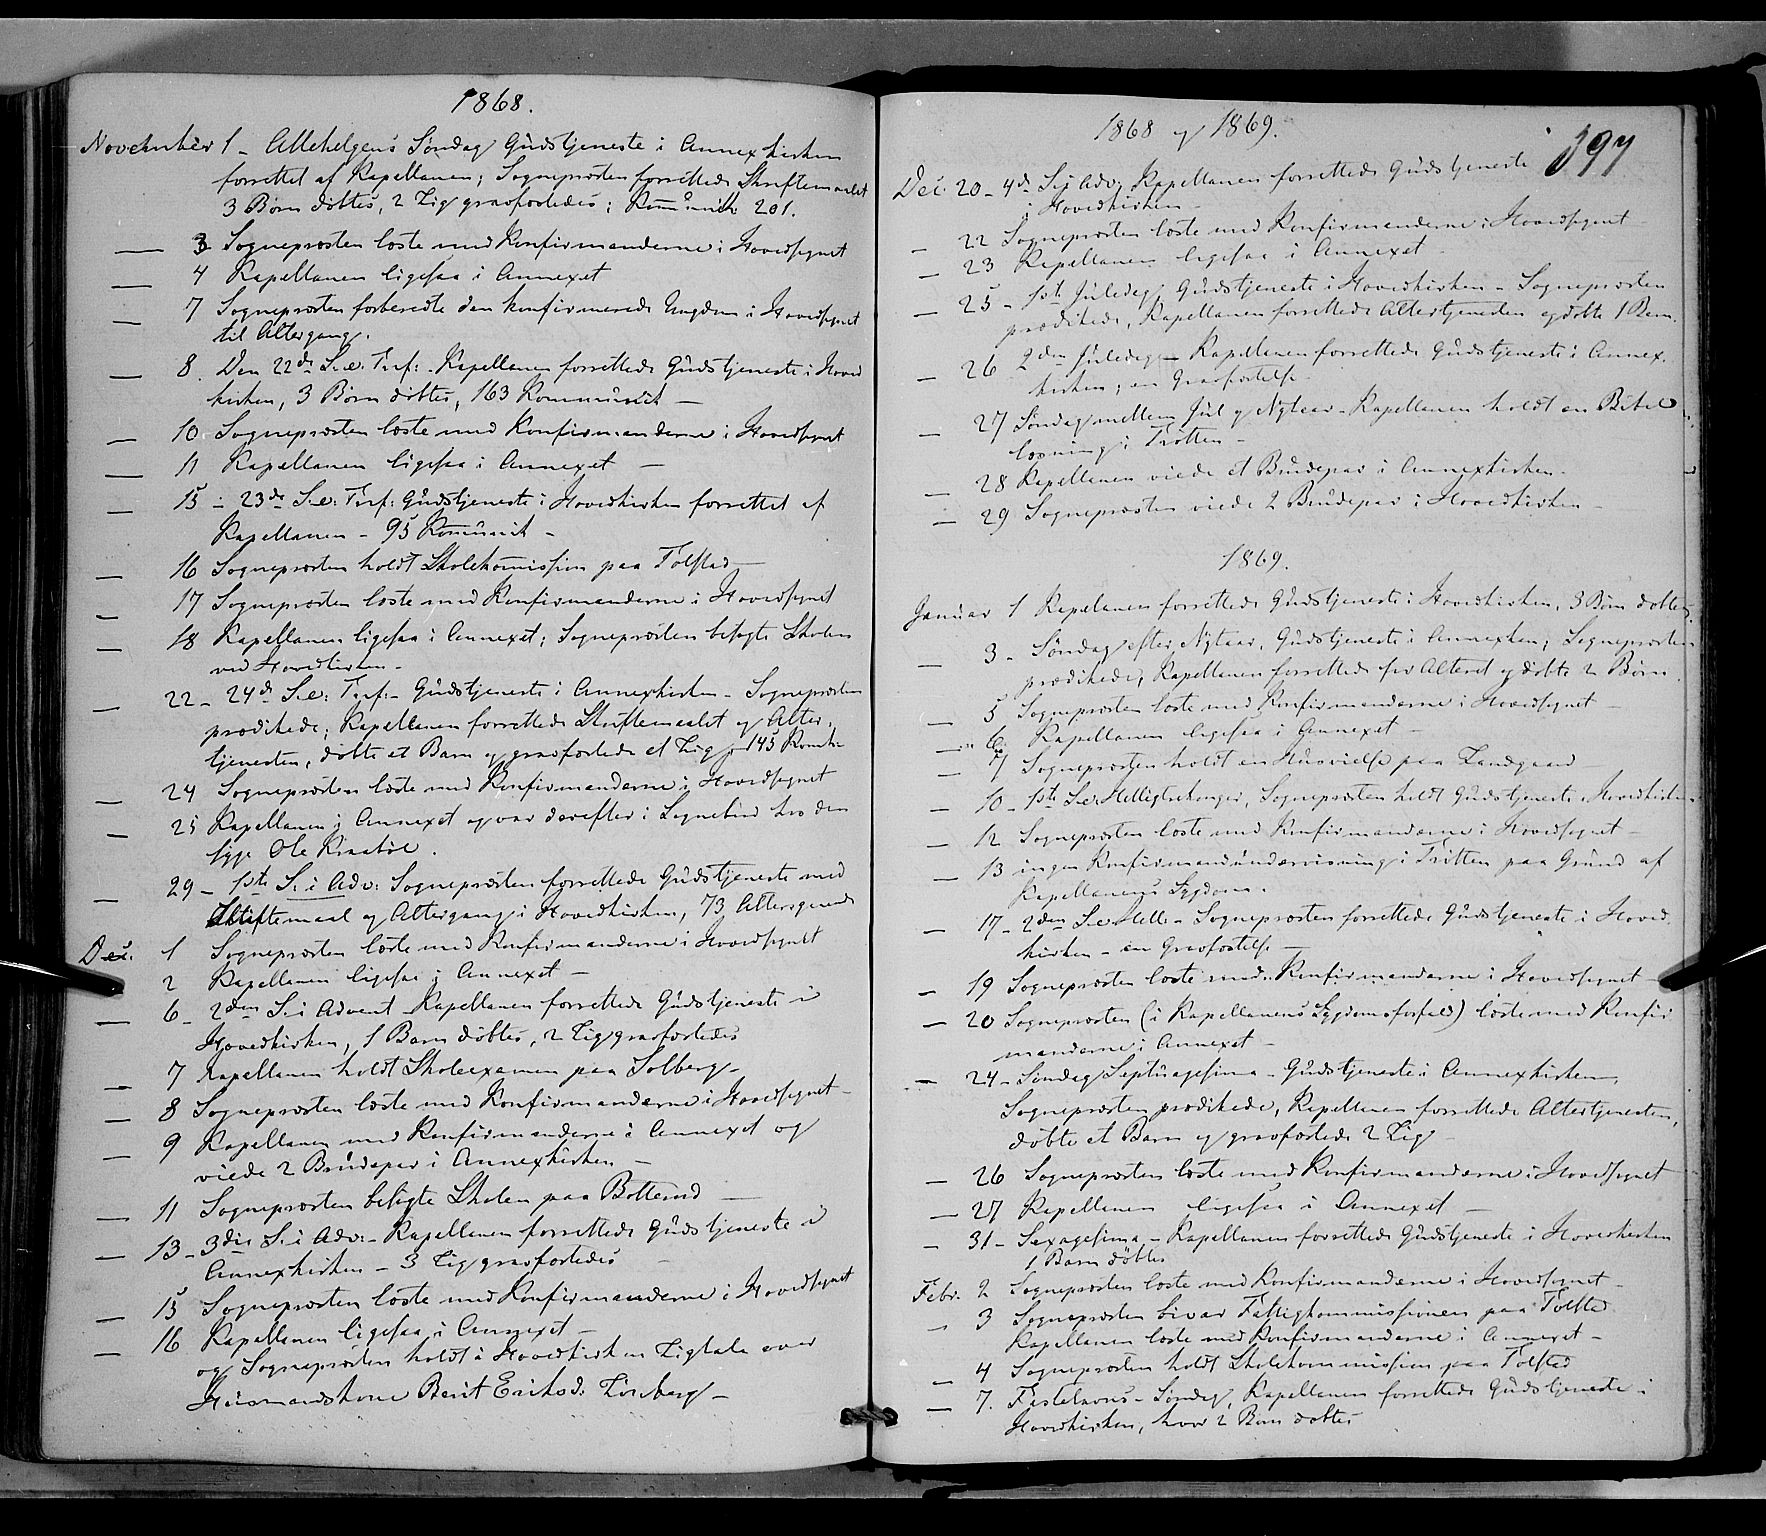 1868.
November 1 - Allehelgens Søndag Gudstjeneste i Annexkirken
forrettet af Kapellanen; Sognepræsten forrettede Skriftemaalet
3 Børn døbtes, 2 Lig gravfæstedes; Kommunik 201.
— 3 Sognepræsten læste med Konfirmanderne i Hovedsognet
— 4 Kapellanen ligesaa i Annexet
— 7 Sognepræsten forberedte den konfirmerede Ungdom i Hovedsognet
til Altergang.
— 8. Den 22de S. e. Tref: - Kapellanen forrettede Gudstjeneste i Hoved
kirken, 3 Børn døbtes, 163 Kommunik —
— 10 Sognepræsten læste med Konfirmanderne i Hovedsognet
— 11 Kapellanen ligesaa i Annexet —
— 15 - 23de S. e: Tref: Gudstjeneste i Hovedkirken forrettet af
Kapellanen - 95 Kommunik -
— 16 Sognepræsten holdt Skolekomission paa Tolstad —
— 17 Sognepræsten læste med Konfirmanderne i Hovedsognet
— 18 Kapellanen ligesaa i Annexet; Sognepræsten besøgte Skolen
ved Hovedkirken -
— 22 - 24de S. e: Tref: - Gudstjeneste i Annexkirken - Sognepræsten
prædikede; Kapellanen forrettede Skriftemaalet og Alter-
tjenesten, døbte et Barn og gravfæstede et Lig - 145 Komk.
— 24 Sognepræsten læste med Konfirmanderne i Hovedsognet
— 25 Kapellanen i Annexet og var derefter i Sognebud hos den
syge Ole
— 29 - 1ste S. i Adv: Sognepræsten forrettede Gudstjeneste med
Skriftemaal og Altergang i Hovedkirken, 73 Altergjæster
Dec. 1 Sognepræsten læste med Konfirmanderne i Hovedsognet
2 Kapellanen ligesaa i Annexet -
— 6 - 2den S. i Advent - Kapellanen forrettede Gudstjeneste i
Hovedkirken, 1 Barn døbtes, 2 Lig gravfæstedes
— 7 Kapellanen holdt Skoleexamen paa Solberg -
— 8 Sognepræsten læste med Konfirmanderne i Hovedsognet -
— 9 Kapellanen med Konfirmanderne i Annexet og
viede 2 Brudepar i Annexkirken —
— 11 Sognepræsten besøgte Skolen paa —
— 13 - 3die S. i Adv: - Kapellanen forrettede Gudstjeneste i
Annexkirken - 3 Lig gravfæstedes —
— 15 Sognepræsten læste med Konfirmanderne i Hovedsognet
— 16 Kapellanen ligesaa i Annexet —
og Sognepræsten holdt i Hovedkirken Ligtale over
Huusmandskone Berit Eriksd: -
1868 og 1869.
397
Dec. 20 - 4de S. i Adv; Kapellanen forrettede Gudstjeneste
i Hovedkirken -
— 22 Sognepræsten læste med Konfirmanderne i Hovedsognet -
— 23 Kapellanen ligesaa i Annexet -
— 25 - 1ste Juledag Gudstjeneste i Hovedkirken - Sognepræsten
prædikede, Kapellanen forrettede Altertjenesten og døbte 1 Barn.
— 26 2den Juledag - Kapellanen forrettede Gudstjeneste i Annex-
kirken; en Gravfæstelse -
— 27 Søndag mellem Jul og Nytaar - Kapellanen holdt en Bibel
læsning i Trøtten -
— 28 Kapellanen viede et Brudepar i Annexkirken -
— 29 Sognepræsten viede 2 Brudepar i Hovedkirken -
1869.
Januar 1 Kapellanen forrettede Gudstjeneste i Hovedkirken, 3 Børn døbtes.
— 3 - Søndag efter Nytaar, Gudstjeneste i Annexken; Sognepræsten
prædikede, Kapellanen forrettede for Alteret og døbte 2 Børn.
— 5 Sognepræsten læste med Konfirmanderne i Hovedsognet —
— 6. Kapellanen ligesaa i Annexet —
— 7 Sognepræsten holdt en Husvielse paa Landgaard —
— 10 - 1ste S. e. Helligtrekonger, Sognepræsten holdt Gudstjeneste i Hovedkirken
— 12 Sognepræsten læste med Konfirmanderne i Hovedsognet —
— 13 ingen Konfirmandundervisning i Trøtten paa Grund af
Kapellanens Sygdom.
— 17 - 2den S. e Hell. - Sognepræsten forrettede Gudstjeneste i Hoved
kirken - en Gravfæstelse —
— 19 Sognepræsten læste med Konfirmanderne i Hovedsognet —
— 20 Sognepræsten (i Kapellanens Sygdomsforfald) læste med Konfir
manderne i Annexet —
— 24 - Søndag Septuagesima - Gudstjeneste i Annexkirken,
Sognepræsten prædikede, Kapellanen forrettede Altertjenesten,
døbte et Barn og gravfæstede 2 Lig -
— 26 Sognepræsten læste med Konfirmanderne i Hovedsognet
— 27 Kapellanen ligesaa i Annexet —
— 31 - Sexagesima - Kapellanen forrettede Gudstjeneste i Hovedkirken
1 Barn døbtes
Febr. 2 Sognepræsten læste med Konfirmanderne i Hovedsognet -
— 3 Sognepræsten bivar Fattigkommissionen paa Tolstad
Kapellanen læste med Konfirmanderne i Annexet -
— 4 Sognepræsten holdt Skolekommission paa Tolstad
— 7. Fastelavns - Søndag, Kapellanen forrettede Gudstjeneste i
Hovedkirken, hvor 2 Børn døbtes